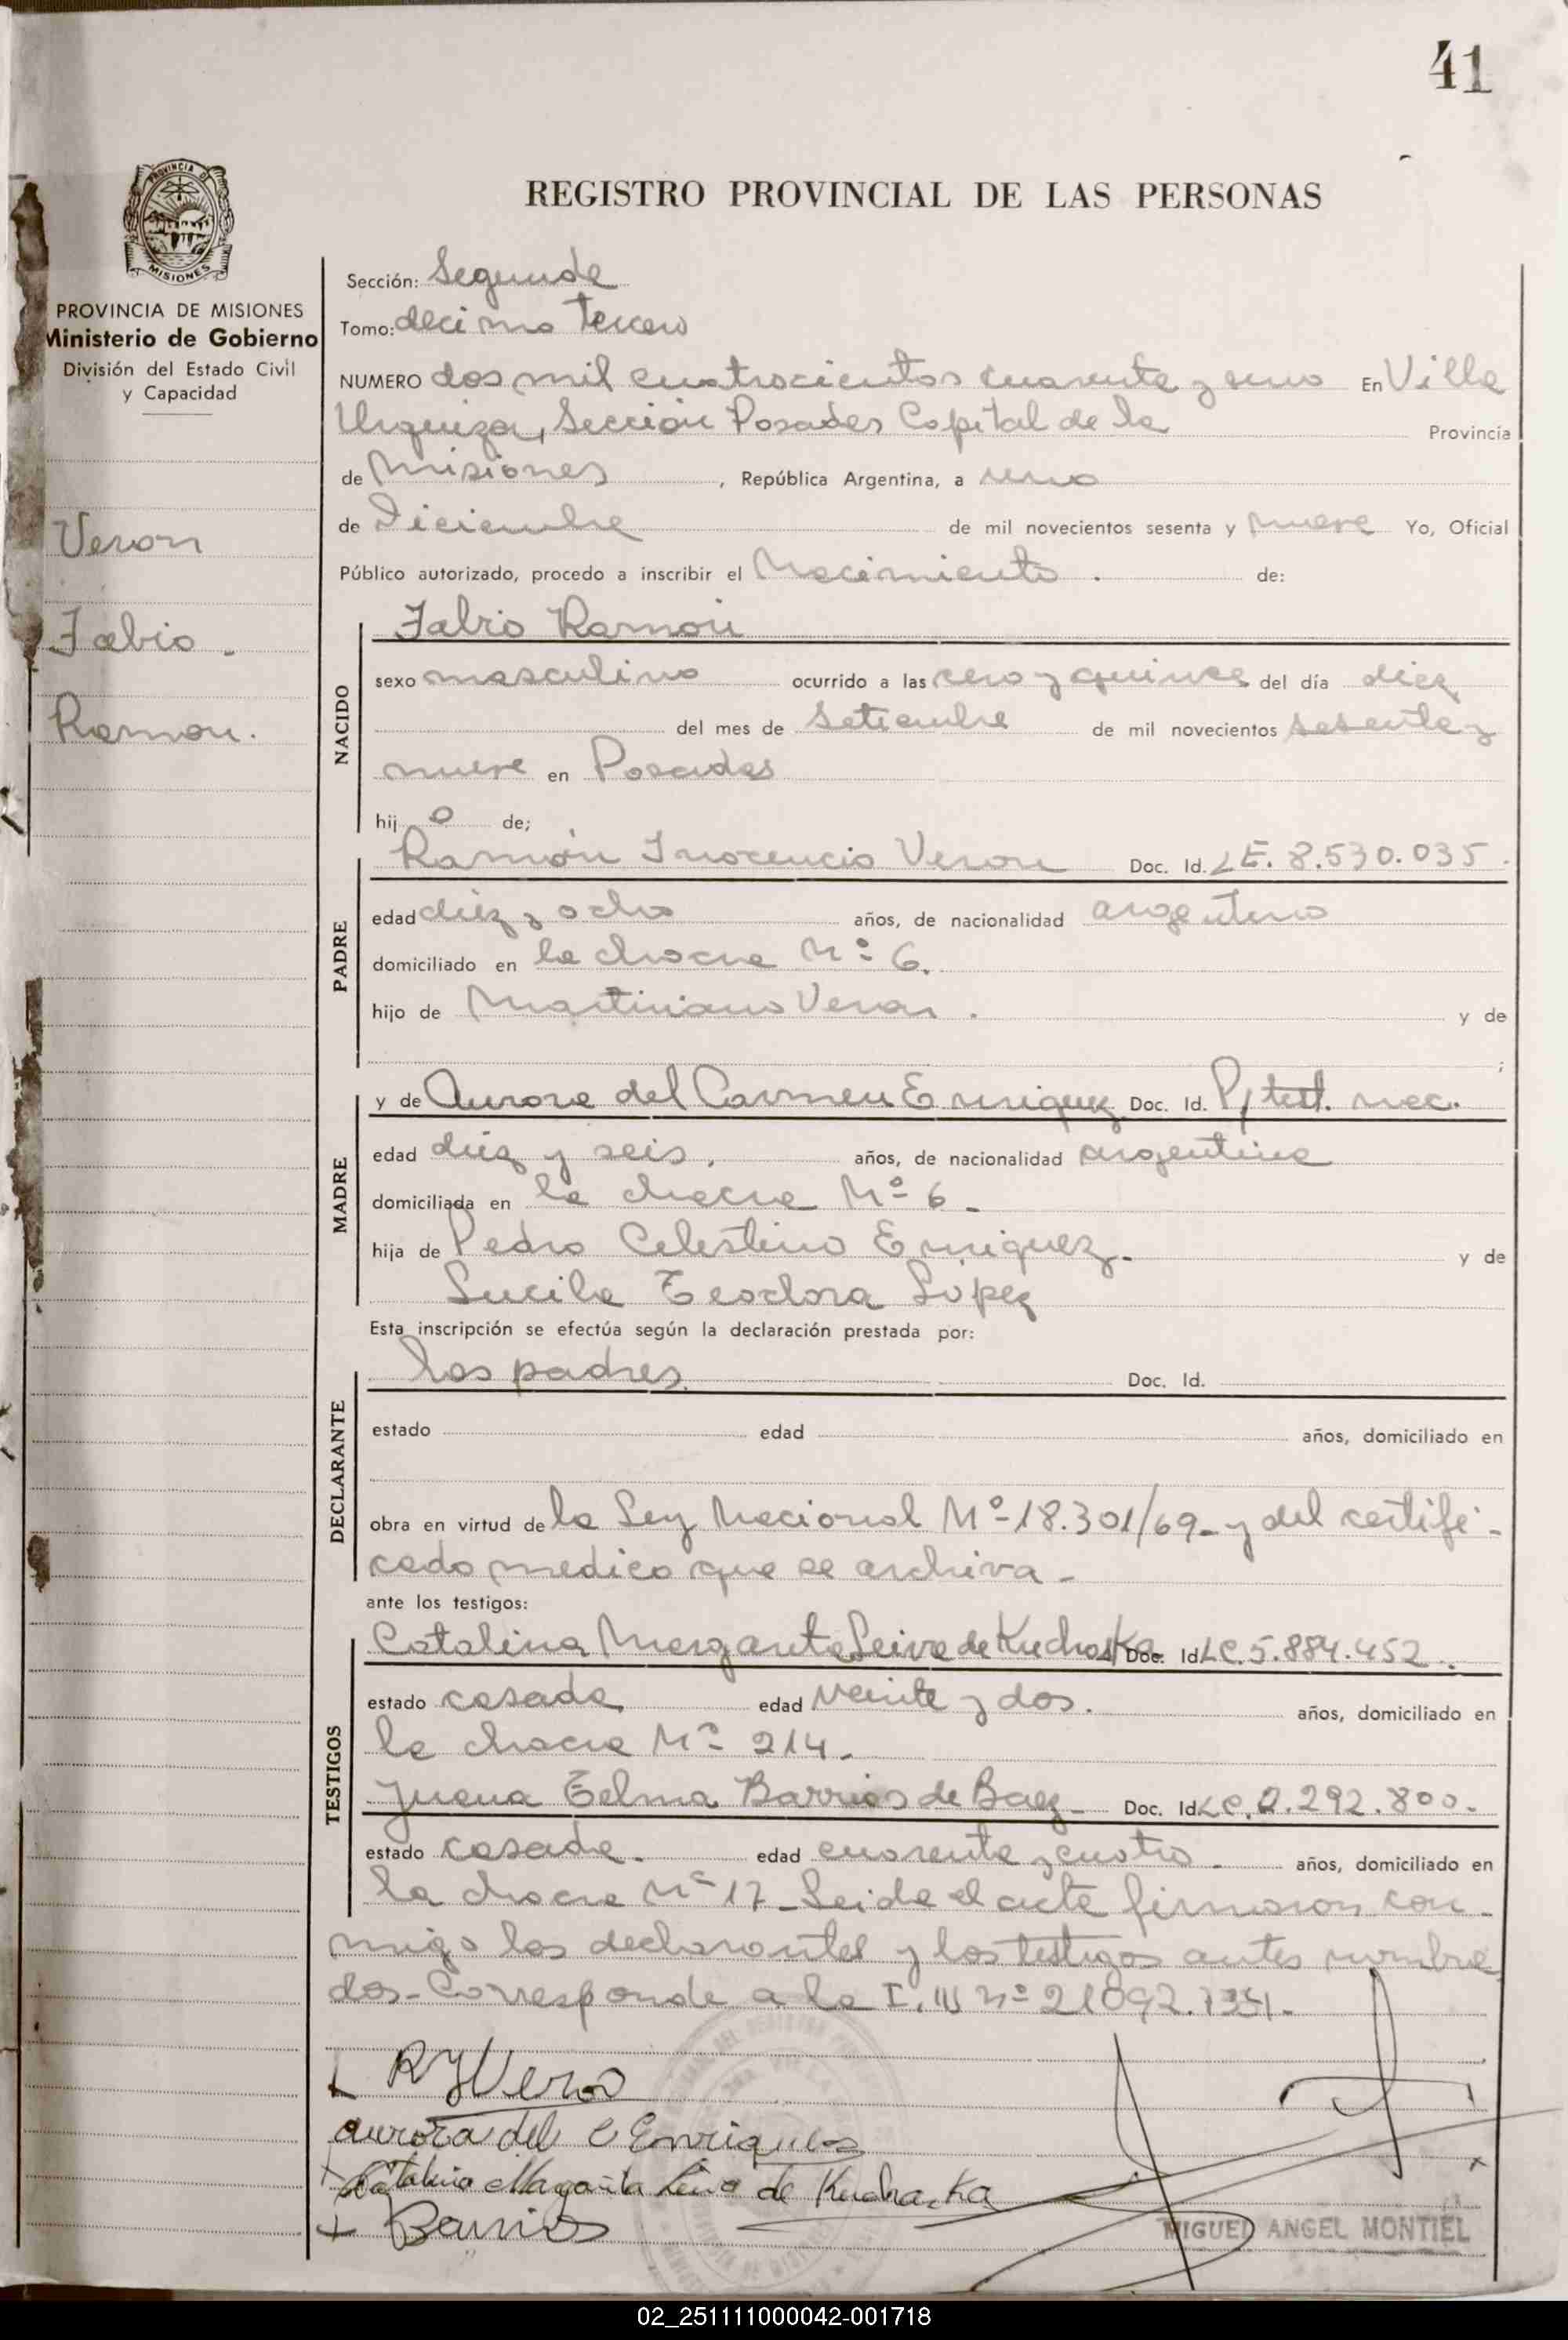 41
PROVINCIA DE
MISIONES
REGISTRO PROVINCIAL DE LAS PERSONAS
PROVINCIA DE MISIONES
Ministerio de Gobierno
División del Estado Civil
y Capacidad
Veron
Fabio -
Ramon.
Sección: Segunda
Tomo: decimo tercero
NUMERO dos mil cuatrocientos cuarenta y uno En Villa
Urquiza, Sección Posadas Capital de la Provincia
de Misiones, República Argentina, a uno
de Diciembre de mil novecientos sesenta y nueve Yo, Oficial
Público autorizado, procedo a inscribir el Nacimiento. de:
NACIDO
Fabio Ramón
sexo masculino ocurrido a las cero y quince del día diez
del mes de Setiembre de mil novecientos sesenta y
nueve en Posadas
hijo de;
PADRE
Ramón Inocencio Veron Doc. Id. LE. 8.530.035.
edad diez y ocho años, de nacionalidad argentino
domiciliado en la chacra Nº 6.
hijo de Martiniano Veron. y de
;
MADRE
y de Aurora del Carmen Enriquez Doc. Id. P/ test. nac.
edad diez y seis. años, de nacionalidad argentina
domiciliada en la chacra Nº 6-
hija de Pedro Celestino Enriquez- y de
Lucila Teodora López
Esta inscripción se efectúa según la declaración prestada por:
DECLARANTE
los padres Doc. Id.
estado edad años, domiciliado en
obra en virtud de la Ley Nacional Nº 18.301/69- y del certifi-
cado medico que se archiva-
ante los testigos:
TESTIGOS
Catalina Margarita Leiva de Kuchaska Doc. Id LC. 5.884.452.
estado casada edad veinte y dos. años, domiciliado en
la chacra Nº 214-
Juana Telma Barrios de Baez- Doc. Id LC. 2.292.800.
estado casada. edad cuarenta y cuatro- años, domiciliado en
la chacra Nº 17- Leida el acta firmaron con-
migo los declarantes y los testigos antes nombra
dos- Corresponde a la I. nº 21092.
R I Veron
Aurora del C Enriquez
Catalina Margarita Leiva de Kuchaska
Barrios
MIGUEL ANGEL MONTIEL
02_251111000042-001718